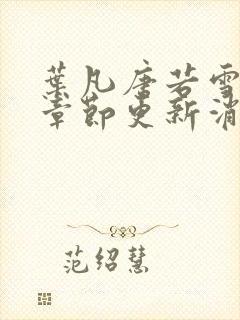 葉凡唐若雪
章節更新消
范紹慧